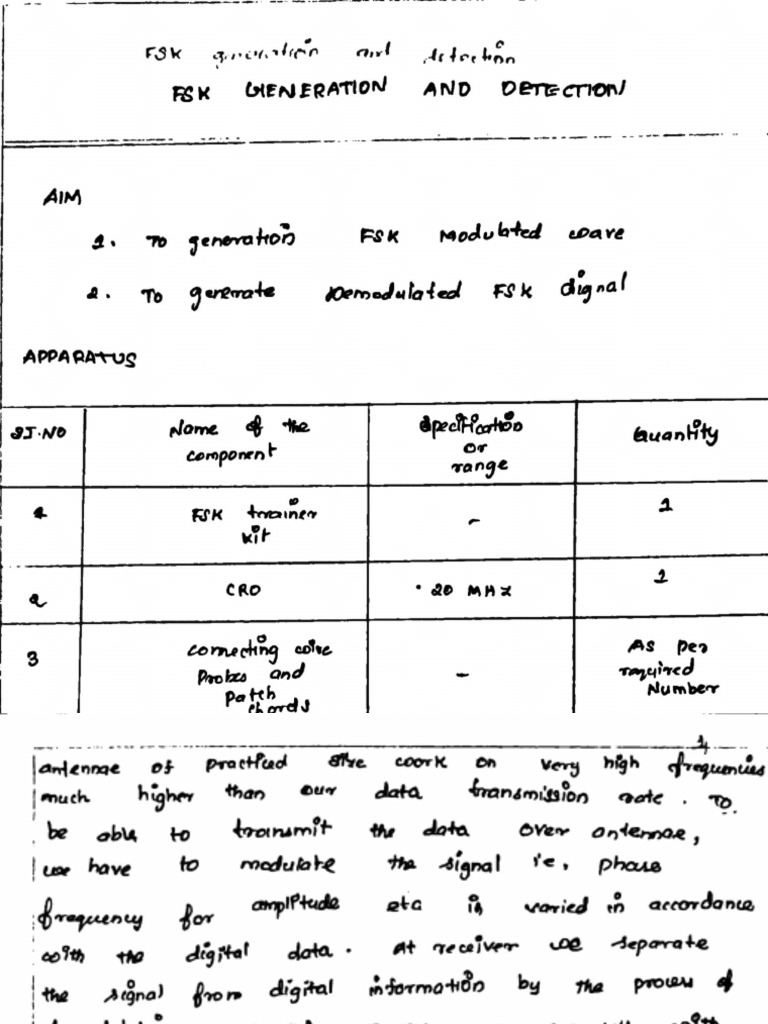 FSK generation and detection
FSK GENERATION AND DETECTION
AIM
1. To generation FSK Modulated wave
2. To generate Demodulated FSK Signal
APPARATUS
SI.NO
Name of the component
Specification or range
Quantity
1
FSK trainer kit
-
1
2
CRO
20 MHz
1
3
connecting wire Probes and Patch chords
-
As per required Number
antennae of practical size work on very high frequencies
much higher than our data transmission rate. To
be able to transmit the data over antennae,
we have to modulate the signal i.e, phase
frequency for amplitude etc is varied in accordance
with the digital data. At receiver we separate
the signal from digital information by the process of